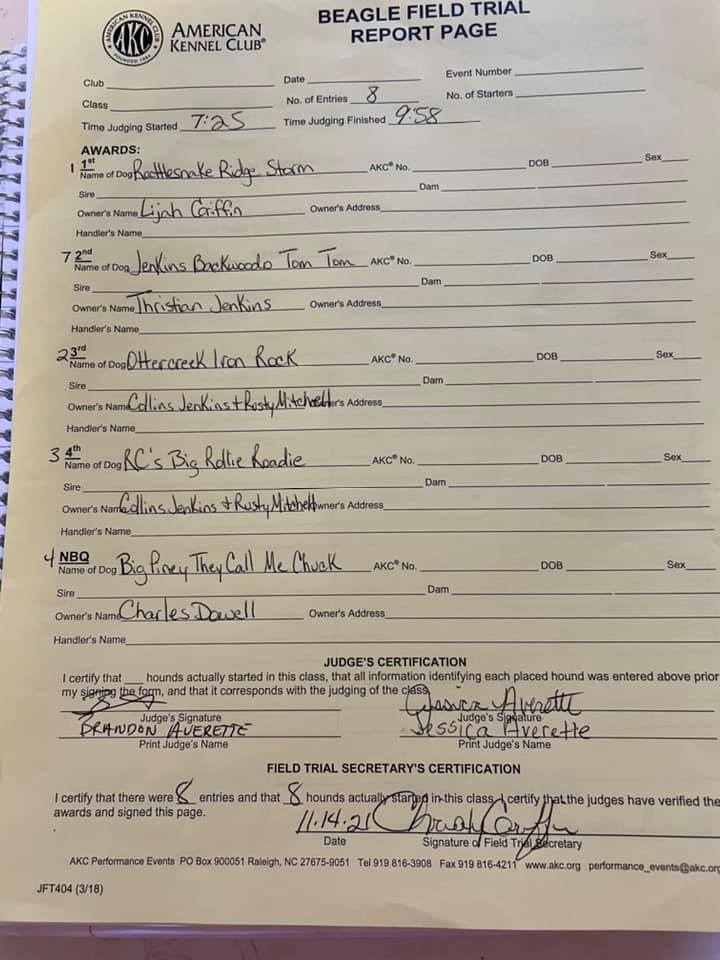 AMERICAN KENNEL CLUB
AKC
FOUNDED 1884
AMERICAN
KENNEL CLUB®
BEAGLE FIELD TRIAL
REPORT PAGE
Club Date Event Number
Class No. of Entries 8 No. of Starters
Time Judging Started 7:25 Time Judging Finished 9:58
AWARDS:
1 1st
Name of Dog Rattlesnake Ridge Storm AKC® No. DOB Sex
Sire Dam
Owner's Name Lijah Griffin Owner's Address
Handler's Name
7 2nd
Name of Dog Jenkins Backwoods Tom Tom AKC® No. DOB Sex
Sire Dam
Owner's Name Thristian Jenkins Owner's Address
Handler's Name
2 3rd
Name of Dog Ottercreek Iron Rock AKC® No. DOB Sex
Sire Dam
Owner's Name Collins Jenkins + Rusty Mitchell Owner's Address
Handler's Name
3 4th
Name of Dog RC's Big Rollie Roadie AKC® No. DOB Sex
Sire Dam
Owner's Name Collins Jenkins + Rusty Mitchell Owner's Address
Handler's Name
4 NBQ
Name of Dog Big Piney They Call Me Chuck AKC® No. DOB Sex
Sire Dam
Owner's Name Charles Dowell Owner's Address
Handler's Name
JUDGE'S CERTIFICATION
I certify that ___ hounds actually started in this class, that all information identifying each placed hound was entered above prior
my signing the form, and that it corresponds with the judging of the class.
Jessica Averette
Judge's Signature Judge's Signature
BRANDON AVERETTE Jessica Averette
Print Judge's Name Print Judge's Name
FIELD TRIAL SECRETARY'S CERTIFICATION
I certify that there were 8 entries and that 8 hounds actually started in this class. I certify that the judges have verified the
awards and signed this page.
11.14.21
Date Signature of Field Trial Secretary
AKC Performance Events PO Box 900051 Raleigh, NC 27675-9051 Tel 919 816-3908 Fax 919 816-4211 www.akc.org performance_events@akc.org
JFT404 (3/18)